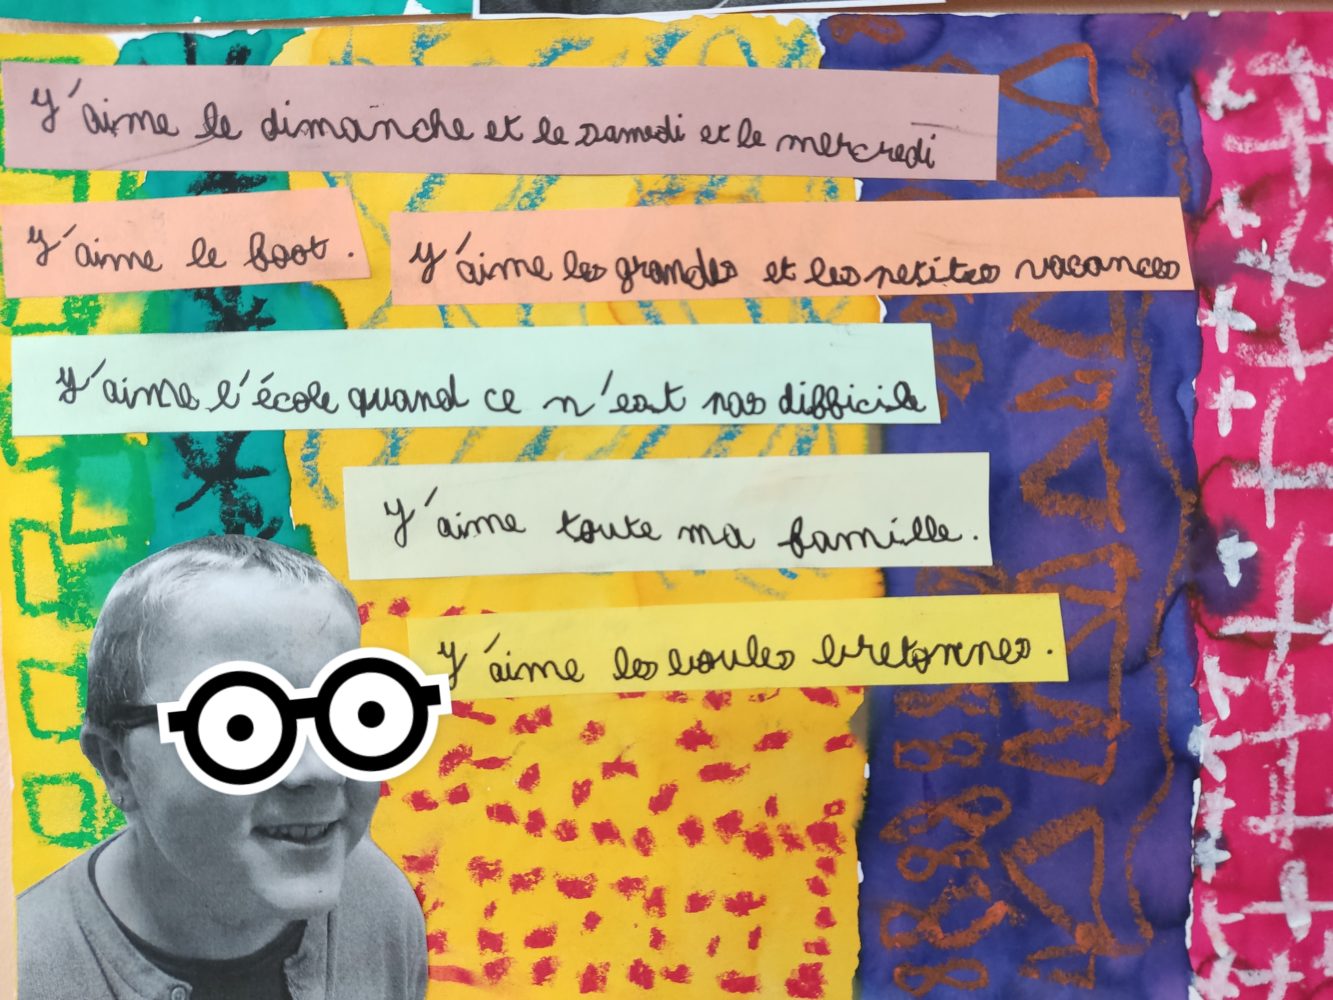 J'aime le dimanche et le samedi et le mercredi
J'aime le foot.
J'aime les grandes et les petites vacances
J'aime l'école quand ce n'est pas difficile
J'aime toute ma famille.
J'aime les boules bretonnes.